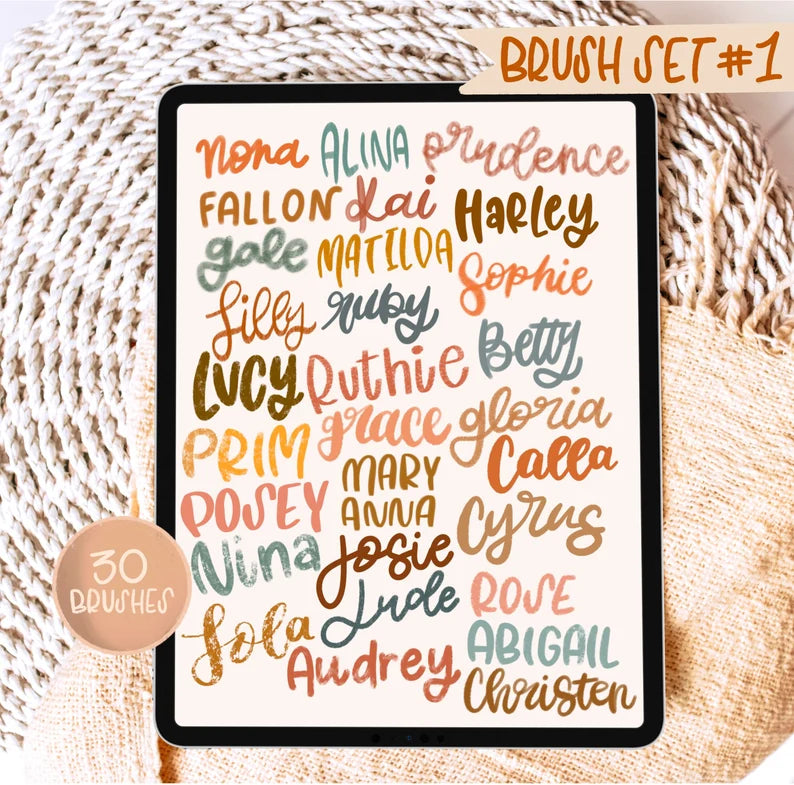 BRUSH SET #1
nona ALINA prudence
FALLON Kai Harley
gale MATILDA Sophie
Lilly ruby
LUCY Ruthie Betty
PRIM grace gloria
Calla
POSEY MARY ANNA Cyrus
Nina Josie
Lola Jude ROSE
Audrey ABIGAIL
Christen
30
BRUSHES